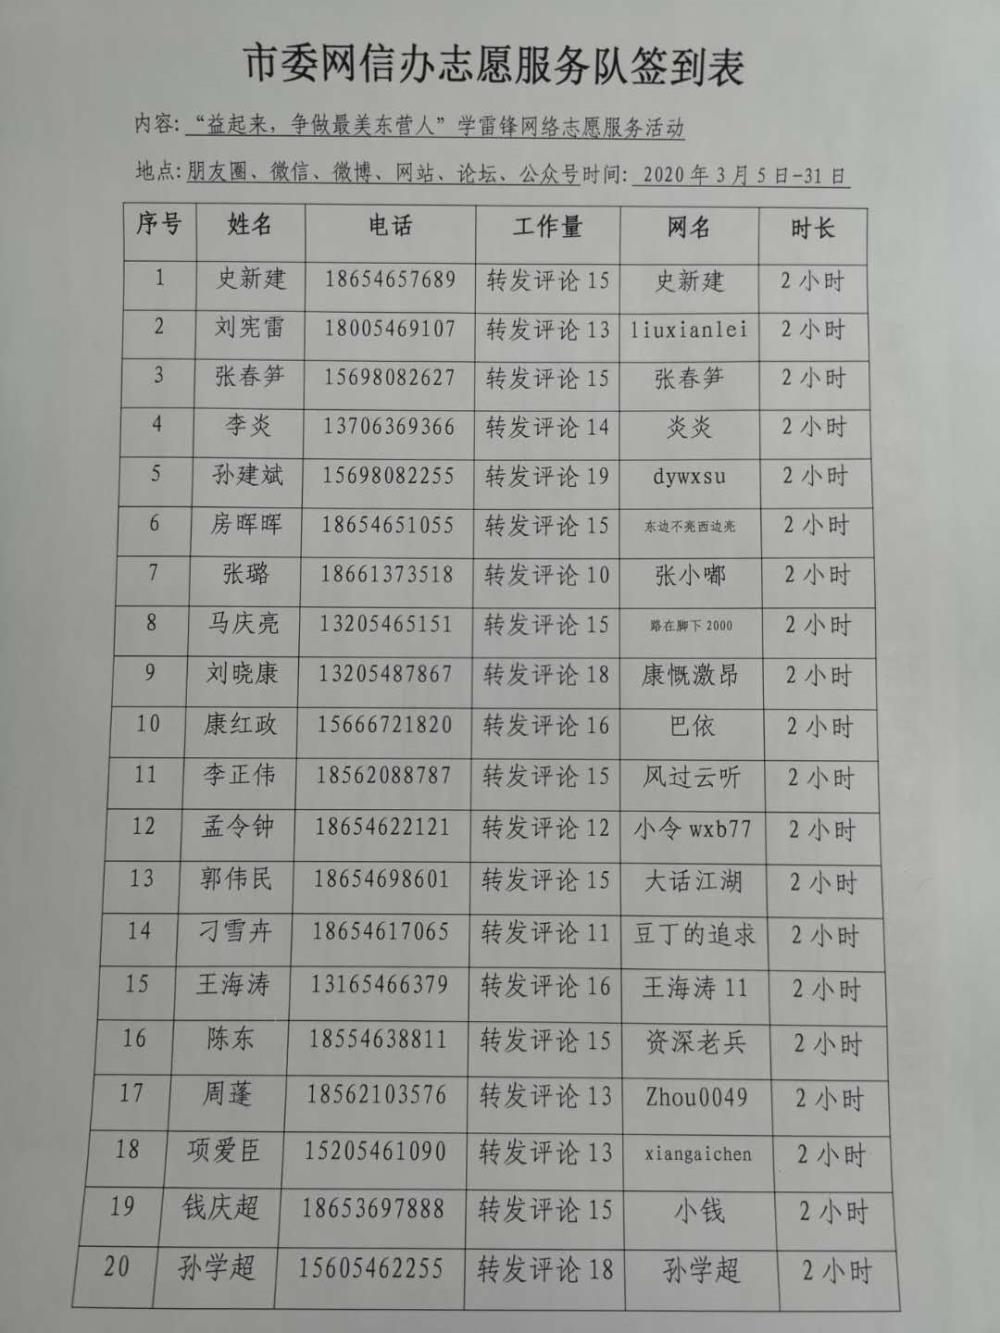 市委网信办志愿服务队签到表
内容:“益起来，争做最美东营人”学雷锋网络志愿服务活动
地点:朋友圈、微信、微博、网站、论坛、公众号时间: 2020 年 3 月 5 日-31 日
序号 姓名 电话 工作量 网名 时长
1 史新建 18654657689 转发评论 15 史新建 2 小时
2 刘宪雷 18005469107 转发评论 13 liuxianlei 2 小时
3 张春笋 15698082627 转发评论 15 张春笋 2 小时
4 李炎 13706369366 转发评论 14 炎炎 2 小时
5 孙建斌 15698082255 转发评论 19 dywxsu 2 小时
6 房晖晖 18654651055 转发评论 15 东边不亮西边亮 2 小时
7 张璐 18661373518 转发评论 10 张小嘟 2 小时
8 马庆亮 13205465151 转发评论 15 路在脚下 2000 2 小时
9 刘晓康 13205487867 转发评论 18 康慨激昂 2 小时
10 康红政 15666721820 转发评论 16 巴依 2 小时
11 李正伟 18562088787 转发评论 15 风过云听 2 小时
12 孟令钟 18654622121 转发评论 12 小令 wxb77 2 小时
13 郭伟民 18654698601 转发评论 15 大话江湖 2 小时
14 刁雪卉 18654617065 转发评论 11 豆丁的追求 2 小时
15 王海涛 13165466379 转发评论 16 王海涛 11 2 小时
16 陈东 18554638811 转发评论 15 资深老兵 2 小时
17 周蓬 18562103576 转发评论 13 Zhou0049 2 小时
18 项爱臣 15205461090 转发评论 13 xiangaichen 2 小时
19 钱庆超 18653697888 转发评论 15 小钱 2 小时
20 孙学超 15605462255 转发评论 18 孙学超 2 小时